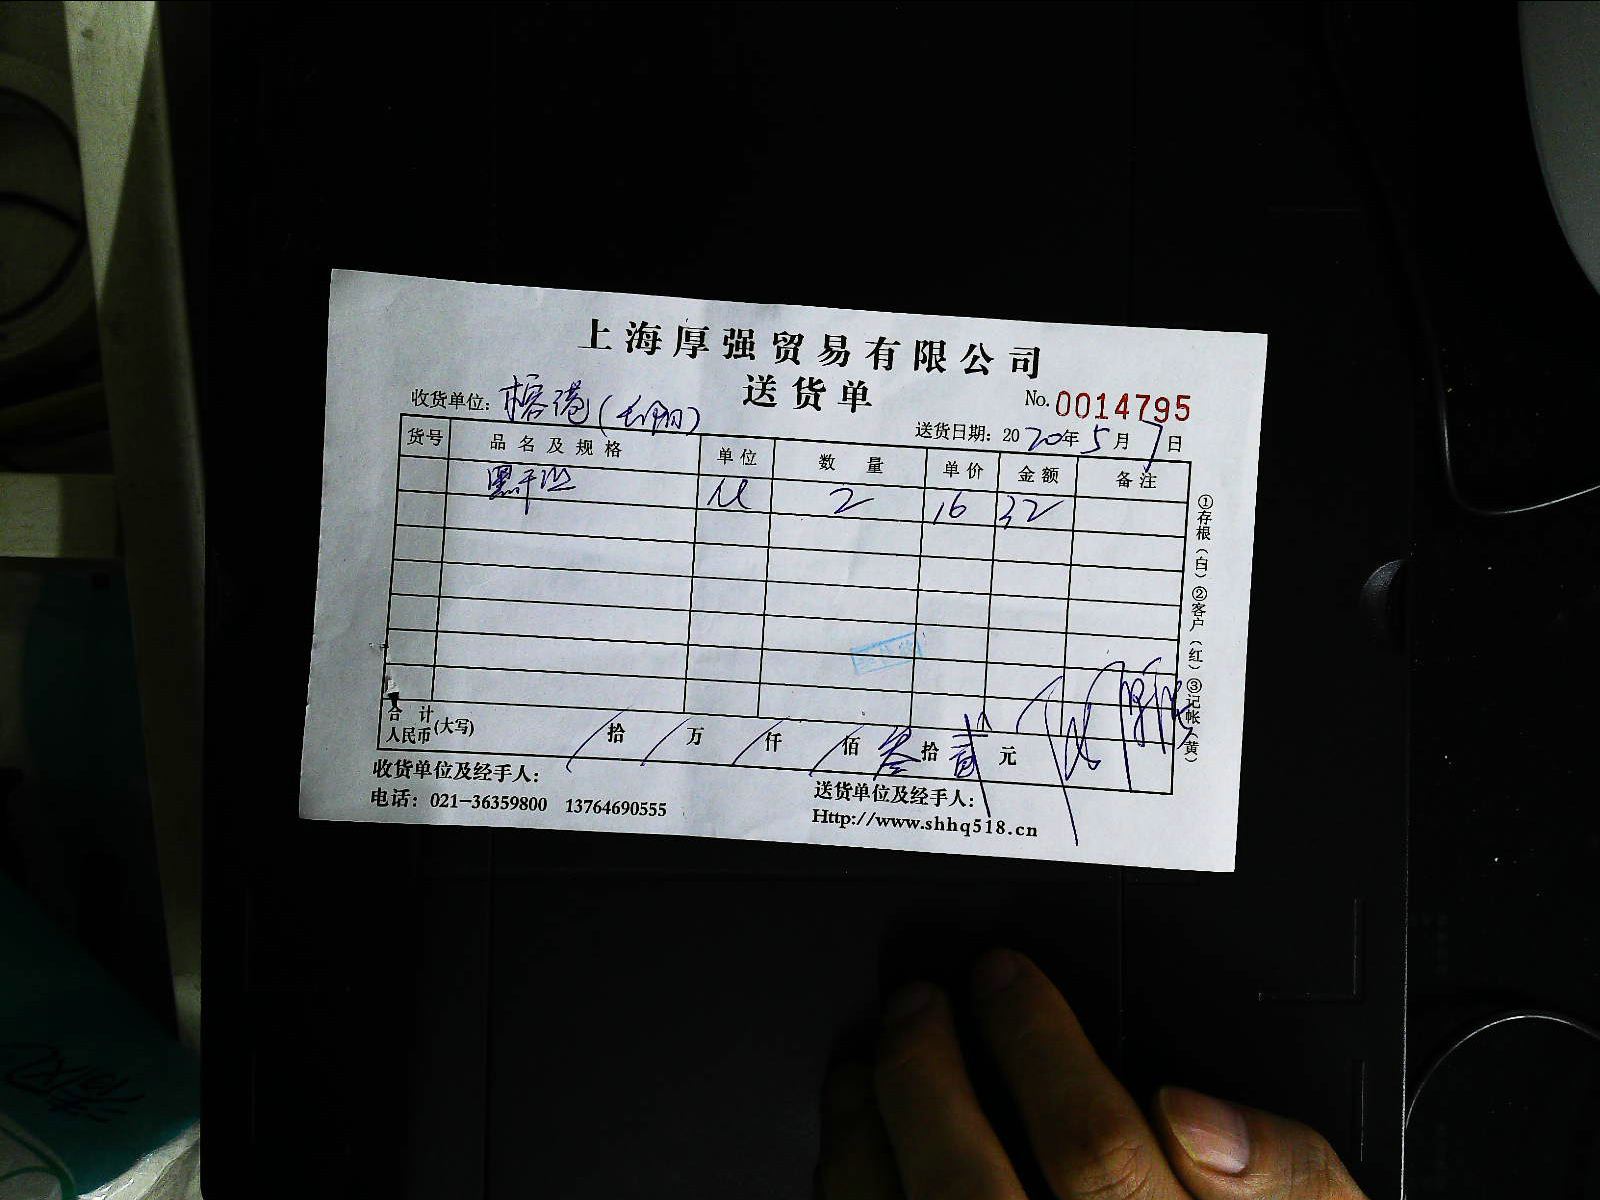 上海厚强贸易有限公司
送货单
No. 0014795
收货单位: 榕港
送货日期: 2020年5月7日
货号 品名及规格 单位 数量 单价 金额 备注
M 2 16 32
合计人民币(大写) / 拾 / 万 / 仟 / 佰 叁拾贰元
收货单位及经手人:
送货单位及经手人:
电话: 021-36359800 13764690555
Http://www.shhq518.cn
①存根(白)②客户(红)③记帐(黄)